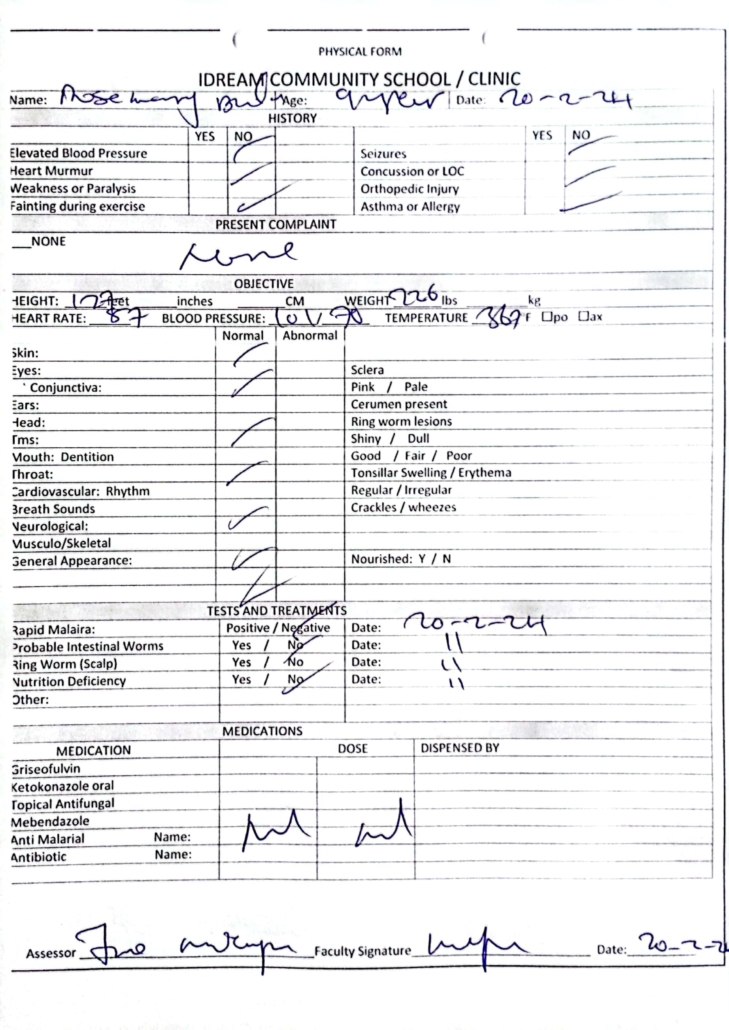 PHYSICAL FORM
IDREAM COMMUNITY SCHOOL / CLINIC
Name: Rosemary Age: Date: 20-2-24
HISTORY
YES NO YES NO
Elevated Blood Pressure Seizures
Heart Murmur Concussion or LOC
Weakness or Paralysis Orthopedic Injury
Fainting during exercise Asthma or Allergy
PRESENT COMPLAINT
__NONE
None
OBJECTIVE
HEIGHT: feet inches CM WEIGHT lbs kg
HEART RATE: 87 BLOOD PRESSURE: 101/70 TEMPERATURE F □po □ax
Normal Abnormal
Skin:
Eyes: Sclera
Conjunctiva: Pink / Pale
Ears: Cerumen present
Head: Ring worm lesions
Tms: Shiny / Dull
Mouth: Dentition Good / Fair / Poor
Throat: Tonsillar Swelling / Erythema
Cardiovascular: Rhythm Regular / Irregular
Breath Sounds Crackles / wheezes
Neurological:
Musculo/Skeletal
General Appearance: Nourished: Y / N
TESTS AND TREATMENTS
Rapid Malaira: Positive / Negative Date: 20-2-24
Probable Intestinal Worms Yes / No Date: 11
Ring Worm (Scalp) Yes / No Date: 11
Nutrition Deficiency Yes / No Date: 11
Other:
MEDICATIONS
MEDICATION DOSE DISPENSED BY
Griseofulvin
Ketokonazole oral
Topical Antifungal
Mebendazole
Anti Malarial Name:
Antibiotic Name:
Assessor Faculty Signature Date: 20-2-2